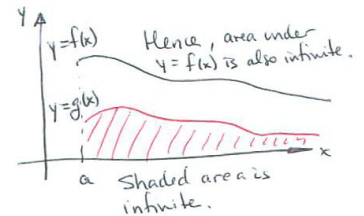 y
y=f(x)
Hence, area under
y = f(x) is also infinite.
y=g(x)
x
a
Shaded area is
infinite.